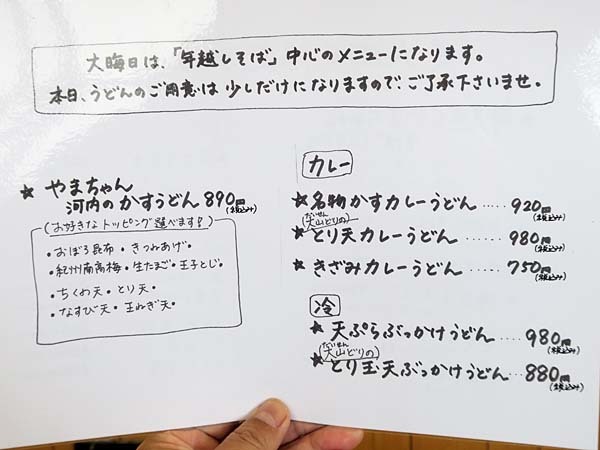 大晦日は、「年越しそば」中心のメニューになります。
本日、うどんのご用意は少しだけになりますので、ご了承下さいませ。
★ やまちゃん
河内のかすうどん 890円(税込み)
(お好きなトッピング選べます!)
・おぼろ昆布・きつねあげ・
・紀州南高梅・生たまご・玉子とじ・
・ちくわ天・とり天・
・なすび天・玉ねぎ天・
カレー
★ 名物かすカレーうどん ····· 920円(税込み)
(大山どりの)
だいせん
★ とり天カレーうどん ····· 980円(税込み)
★ きざみカレーうどん ····· 750円(税込み)
冷
★ 天ぷらぶっかけうどん ···· 980円(税込み)
だいせん
(大山どりの)
★ とり玉天ぶっかけうどん ··· 880円(税込み)